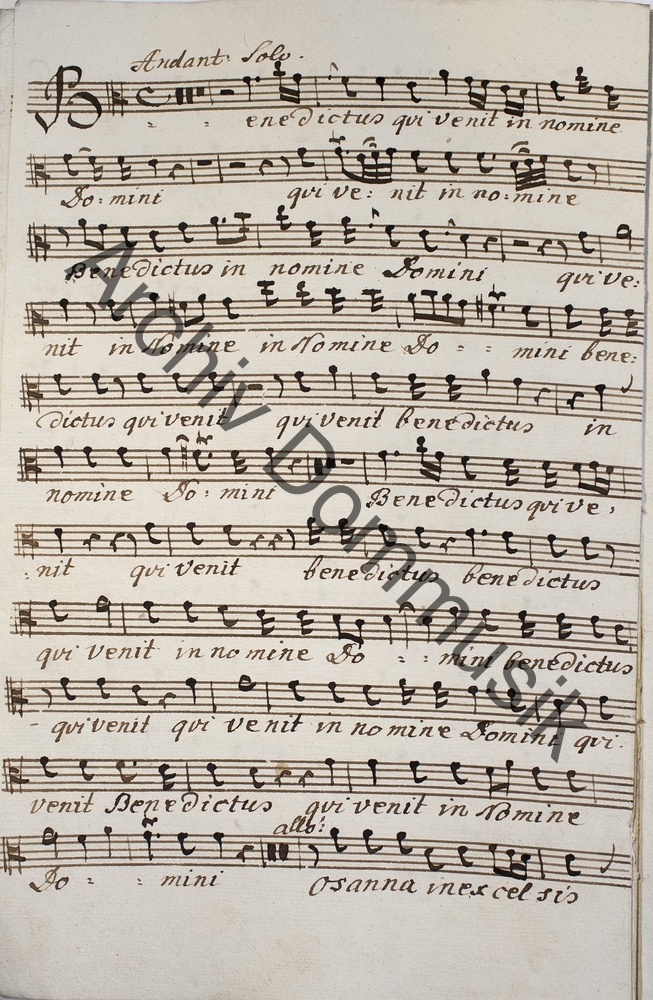 Andant: Solo.
Benedictus qui venit in nomine
Do: mini qui ve: nit in no: mine
Benedictus in nomine Domini qui ve:
nit in Nomine in Nomine Do : : mini bene:
dictus qui venit qui venit benedictus in
nomine Do: mini Benedictus qui ve,
: nit qui venit benedictus benedictus
qui venit in no mine Do : : mini benedictus
- qui venit qui ve nit in no mine Domini qui.
venit Benedictus qui venit in Nomine
allo:
Do : : mini Osanna in ex cel sis
Archiv Dommusik